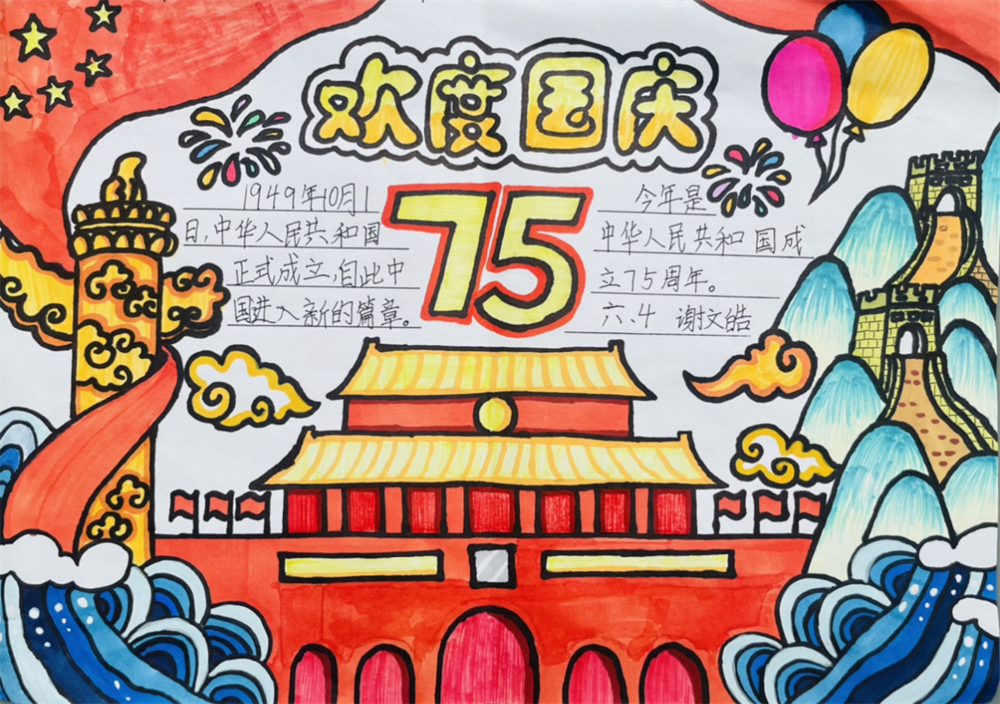 欢度国庆
75
1949年10月1
日，中华人民共和国
正式成立，自此中
国进入新的篇章。
今年是
中华人民共和国成
立75周年。
六、4 谢文皓